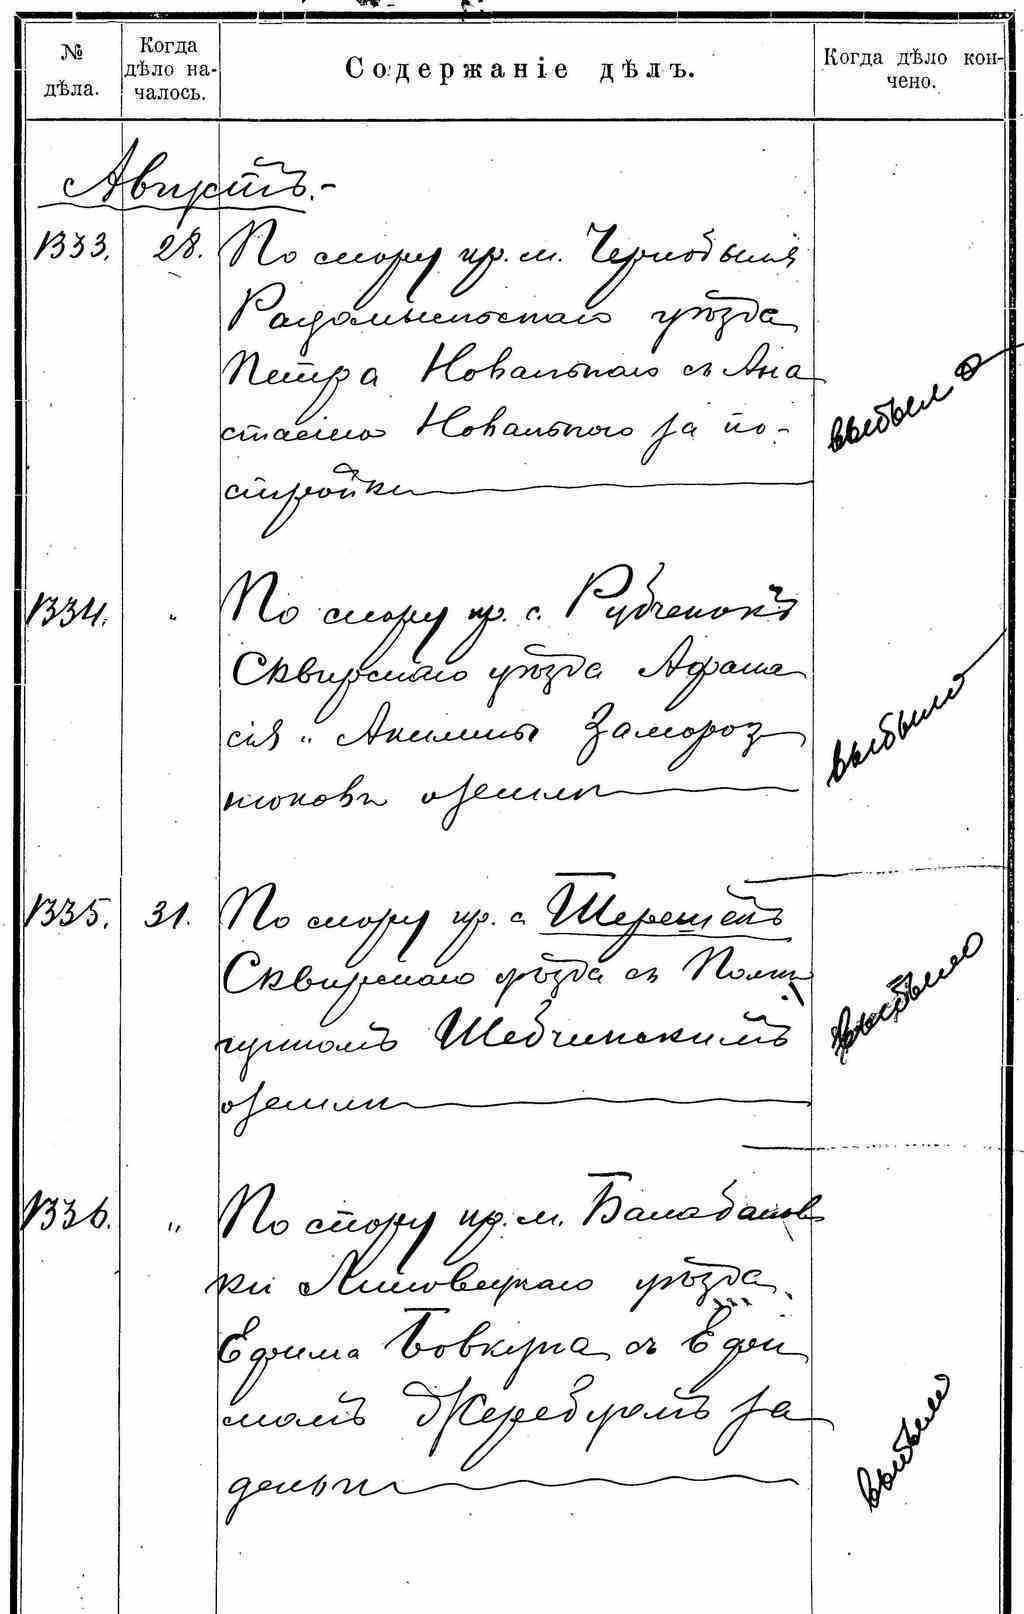 № дѣла.
Когда дѣло на-
чалось.
Содержаніе дѣлъ.
Когда дѣло кон-
чено.
Августъ.-
1333. 28. По спору кр. м. Чернобыля
Радомысльскаго уѣзда
Петра Ковальскаго съ Ана
стасіею за по-
стройки
выбыло
1334. " По спору кр. с. Рубченокъ
Сквирскаго уѣзда Афана
сія и Акилины Замороз
нюковъ о землѣ
выбыло
1335. 31. По спору кр. с. Шерешенъ
Сквирскаго уѣзда съ
Шебчинскимъ
о землѣ
выбыло
1336. " По спору кр. м. Балабанов
ки Липовецкаго уѣзда
Ефима Бовкуна съ Ефи
момъ Жеребцомъ за
деньги
выбыло